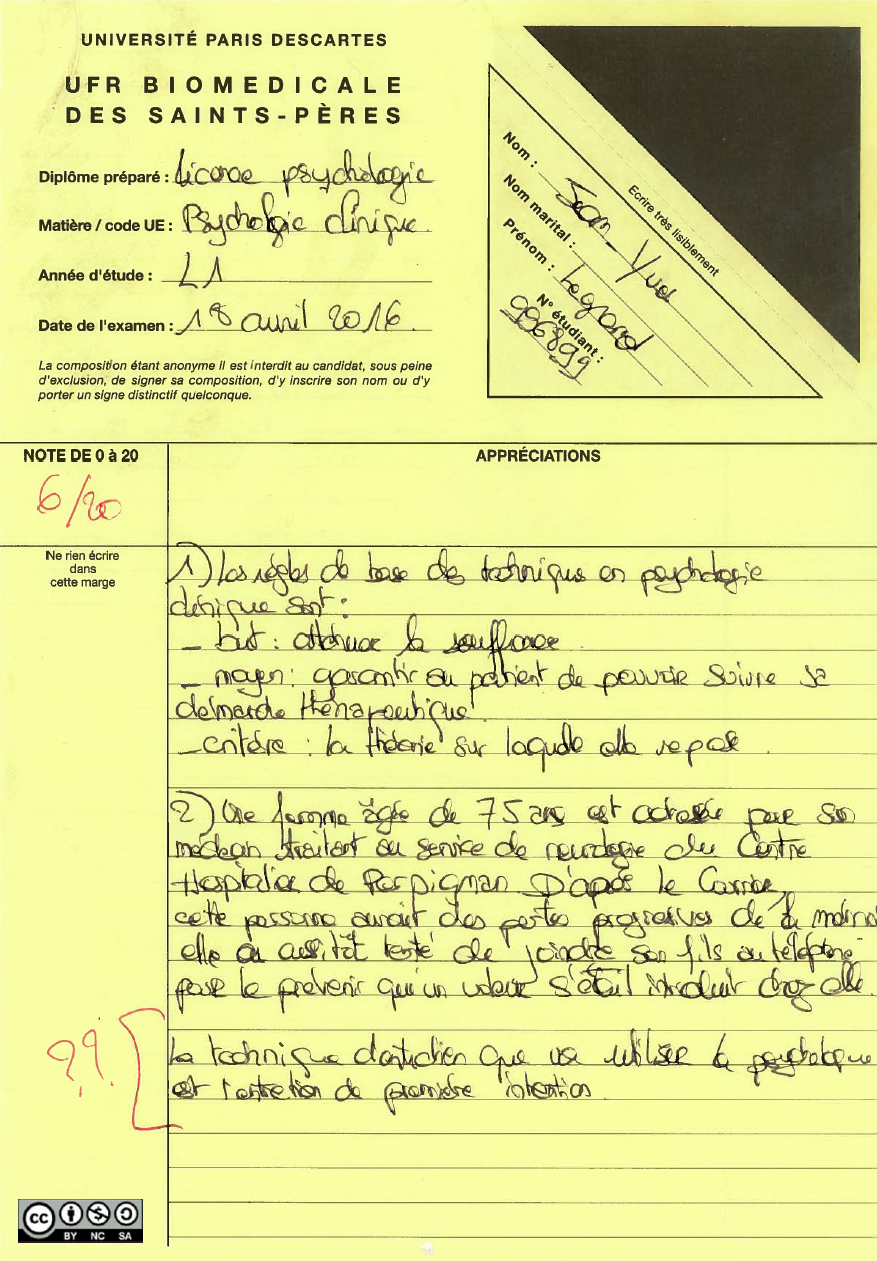 UNIVERSITÉ PARIS DESCARTES
UFR BIOMEDICALE
DES SAINTS-PÈRES
Diplôme préparé : Licence psychologie
Matière / code UE : Psychologie clinique
Année d'étude : L1
Date de l'examen : 18 avril 2016
La composition étant anonyme il est interdit au candidat, sous peine
d'exclusion, de signer sa composition, d'y inscrire son nom ou d'y
porter un signe distinctif quelconque.
Ecrire très lisiblement
Nom : Jean-Yves
Nom marital :
Prénom : Legrand
N° étudiant :
906899
NOTE DE 0 à 20
6/20
APPRÉCIATIONS
Ne rien écrire
dans
cette marge
1) Les règles de base des technique en psychologie
clinique sont :
- but : atténuer la souffrance
- moyen : garantir au patient de pouvoir suivre sa
démarche thérapeutique
- critère : la théorie sur laquelle elle repose.
2) Une femme âgée de 75 ans est adressée par son
médecin traitant au service de neurologie du Centre
Hospitalier de Perpignan D'après le
cette personne aurait des pertes progressives de la
elle a aussitôt tenté de joindre son fils au téléphone
pour le prévenir qu'un voleur s'était introduit chez elle.
??
La technique d'entretien que va utiliser la psychologue
est l'entretien de première intention.
CC BY NC SA